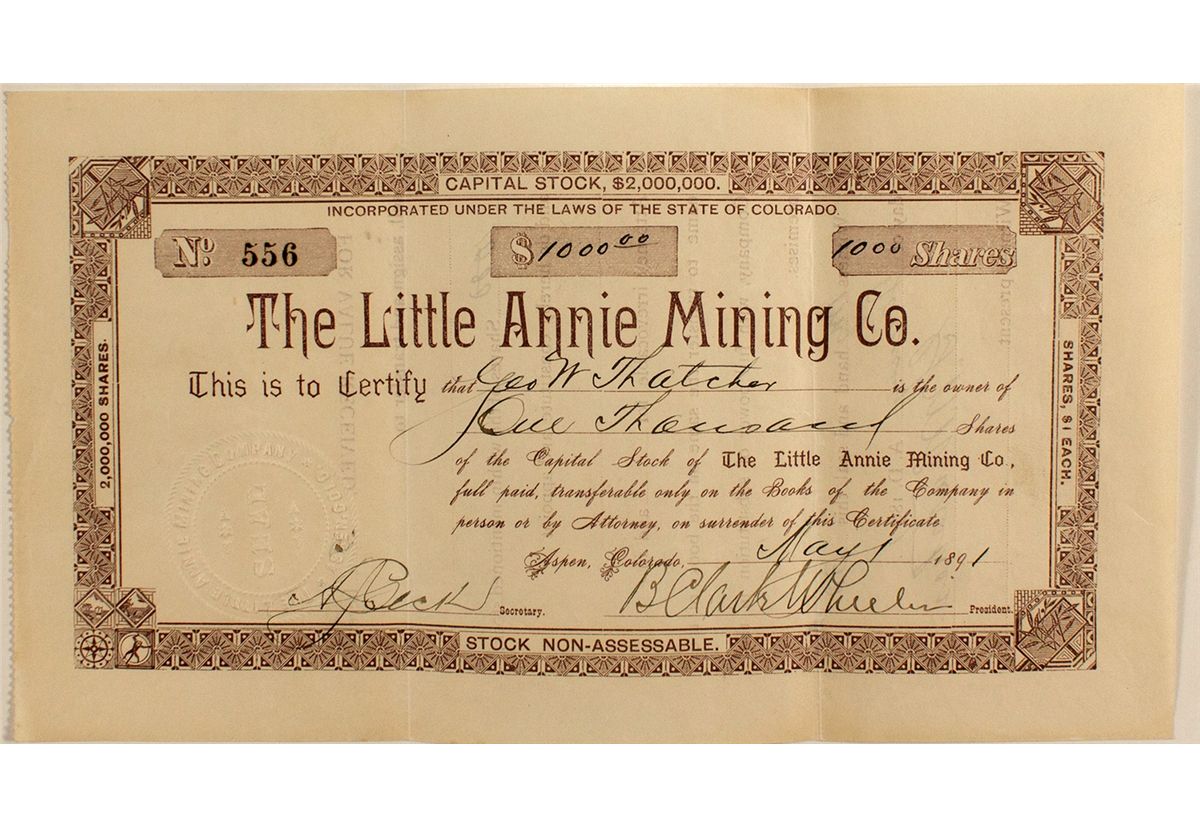 CAPITAL STOCK, $2,000,000.
INCORPORATED UNDER THE LAWS OF THE STATE OF COLORADO.
No. 556
$1000 00
1000 Shares
The Little Annie Mining Co.
This is to Certify that Geo W Thatcher is the owner of
One Thousand Shares
of the Capital Stock of The Little Annie Mining Co.,
full paid, transferable only on the Books of the Company in
person or by Attorney, on surrender of this Certificate
Aspen, Colorado, May 1 1891
Secretary. B Clark Wheeler President.
STOCK NON-ASSESSABLE.
2,000,000 SHARES.
SHARES, $1 EACH.